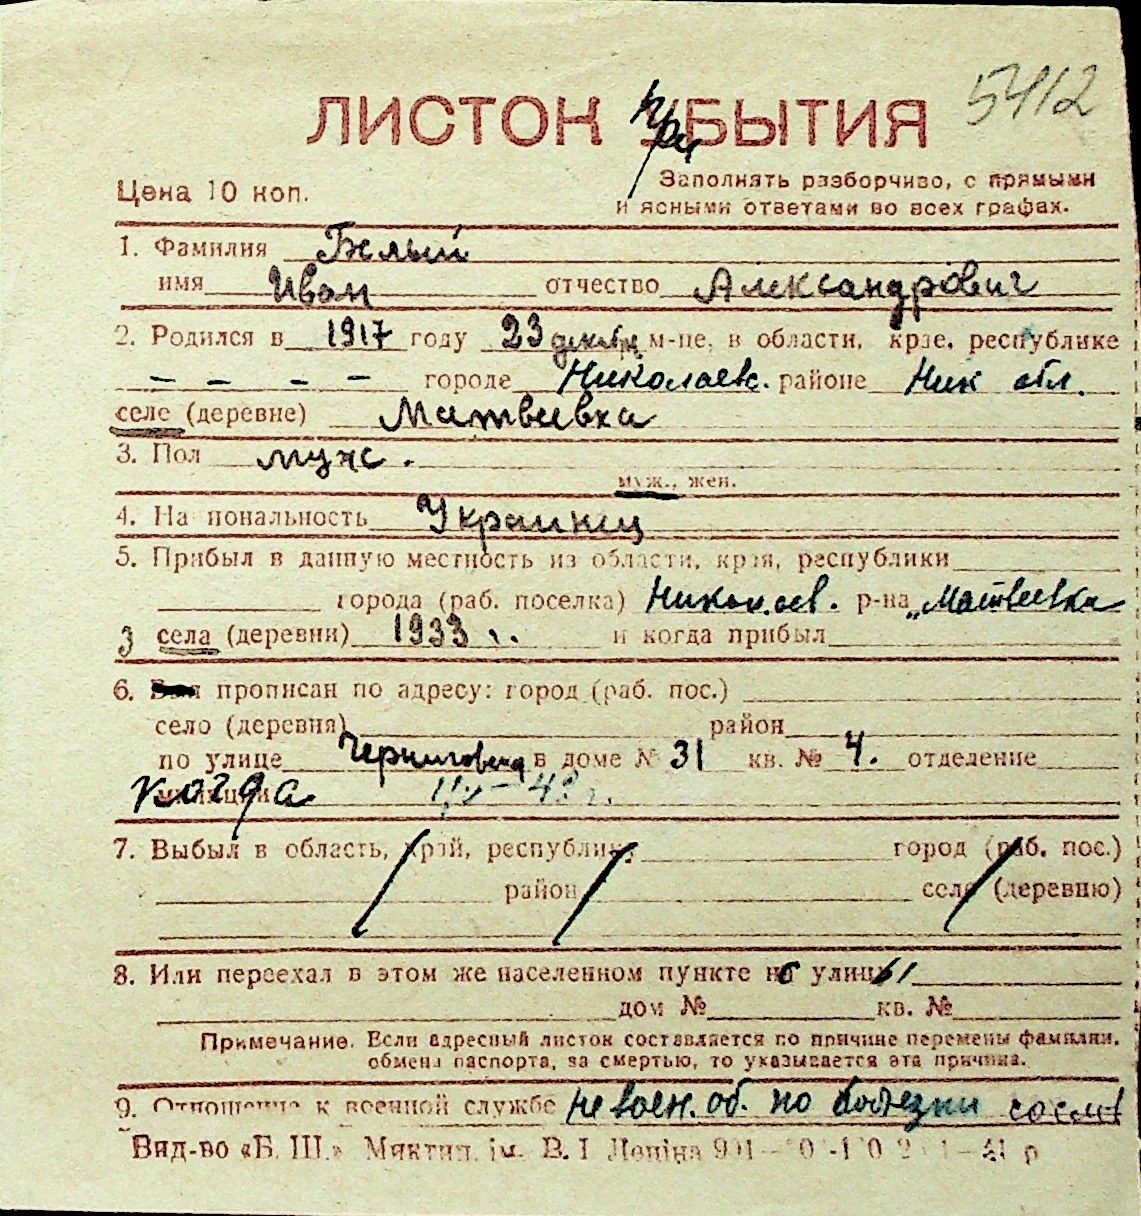 5412
ЛИСТОК УБЫТИЯ
при
Цена 10 коп.
Заполнять разборчиво, с прямыми
и ясными ответами во всех графах.
1. Фамилия Белый
имя Иван отчество Александрович
2. Родился в 1917 году 23 декабр м-це, в области, крае, республике
– – – – городе Николаевс. районе Ник обл.
селе (деревне) Матвеевка
3. Пол муж.
муж., жен.
4. На пональность Украинец
5. Прибыл в данную местность из области, края, республики
города (раб. поселка) Николаев. р-на „Матвеевка
3 села (деревни) 1933 и когда прибыл
6. прописан по адресу: город (раб. пос.)
село (деревня) район
по улице в доме № 31 кв. № 4. отделение
милиции когда
7. Выбыл в область, край, республику город (раб. пос.)
район село (деревню)
8. Или переехал в этом же населенном пункте на улицу
дом № кв. №
Примечание. Если адресный листок составляется по причине перемены фамилии,
обмена паспорта, за смертью, то указывается эта причина.
9. Отношение к военной службе не воен. об. по болезни
Вид-во «Б. Ш.» ім. В. І Леніна